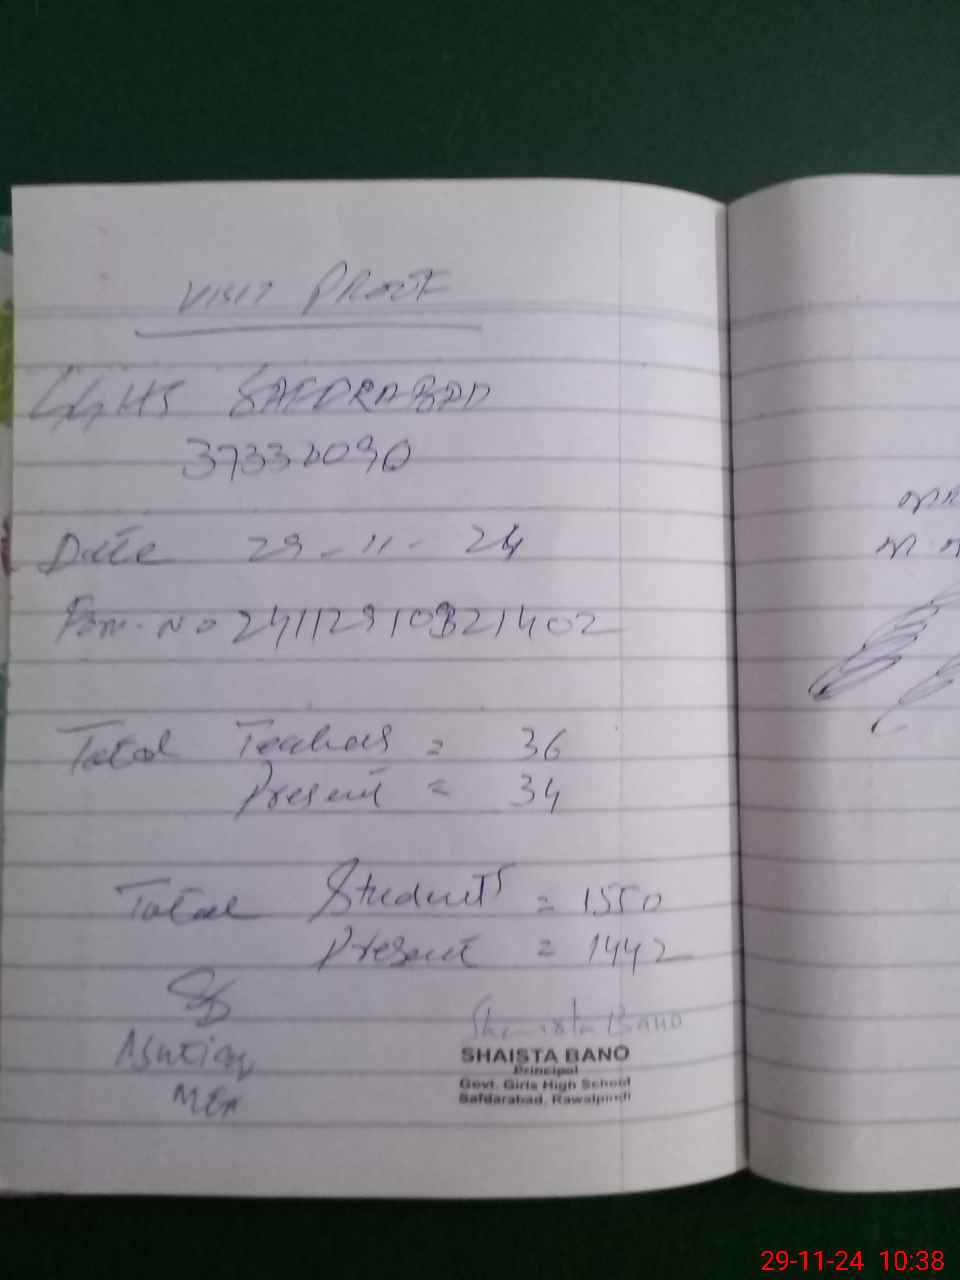 VISIT PROOF
GGHS SAFDRABAD
37330090
Date 29-11-24
Fom. No 24112910821402
Total Teachers = 36
Present = 34
Total Students = 1550
Present = 1442
Shaista Bano
MEA
SHAISTA BANO
Principal
Govt. Girls High School
Safdarabad, Rawalpindi
29-11-24 10:38